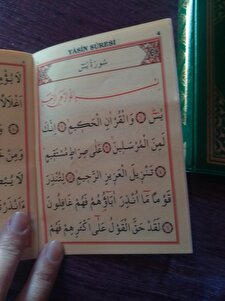 YÂSİN SÛRESİ
4
سُورَةُ يٰسٓ
يٰسٓ ﴿١﴾ وَالْقُرْاٰنِ الْحَكٖيمِ ﴿٢﴾ اِنَّكَ
لَمِنَ الْمُرْسَلٖينَ ﴿٣﴾ عَلٰى صِرَاطٍ مُسْتَقٖيمٍ
﴿٤﴾ تَنْزٖيلَ الْعَزٖيزِ الرَّحٖيمِ ﴿٥﴾ لِتُنْذِرَ
قَوْمًا مَٓا اُنْذِرَ اٰبَٓاؤُ۬هُمْ فَهُمْ غَافِلُونَ
﴿٦﴾ لَقَدْ حَقَّ الْقَوْلُ عَلٰٓى اَكْثَرِهِمْ فَهُمْ